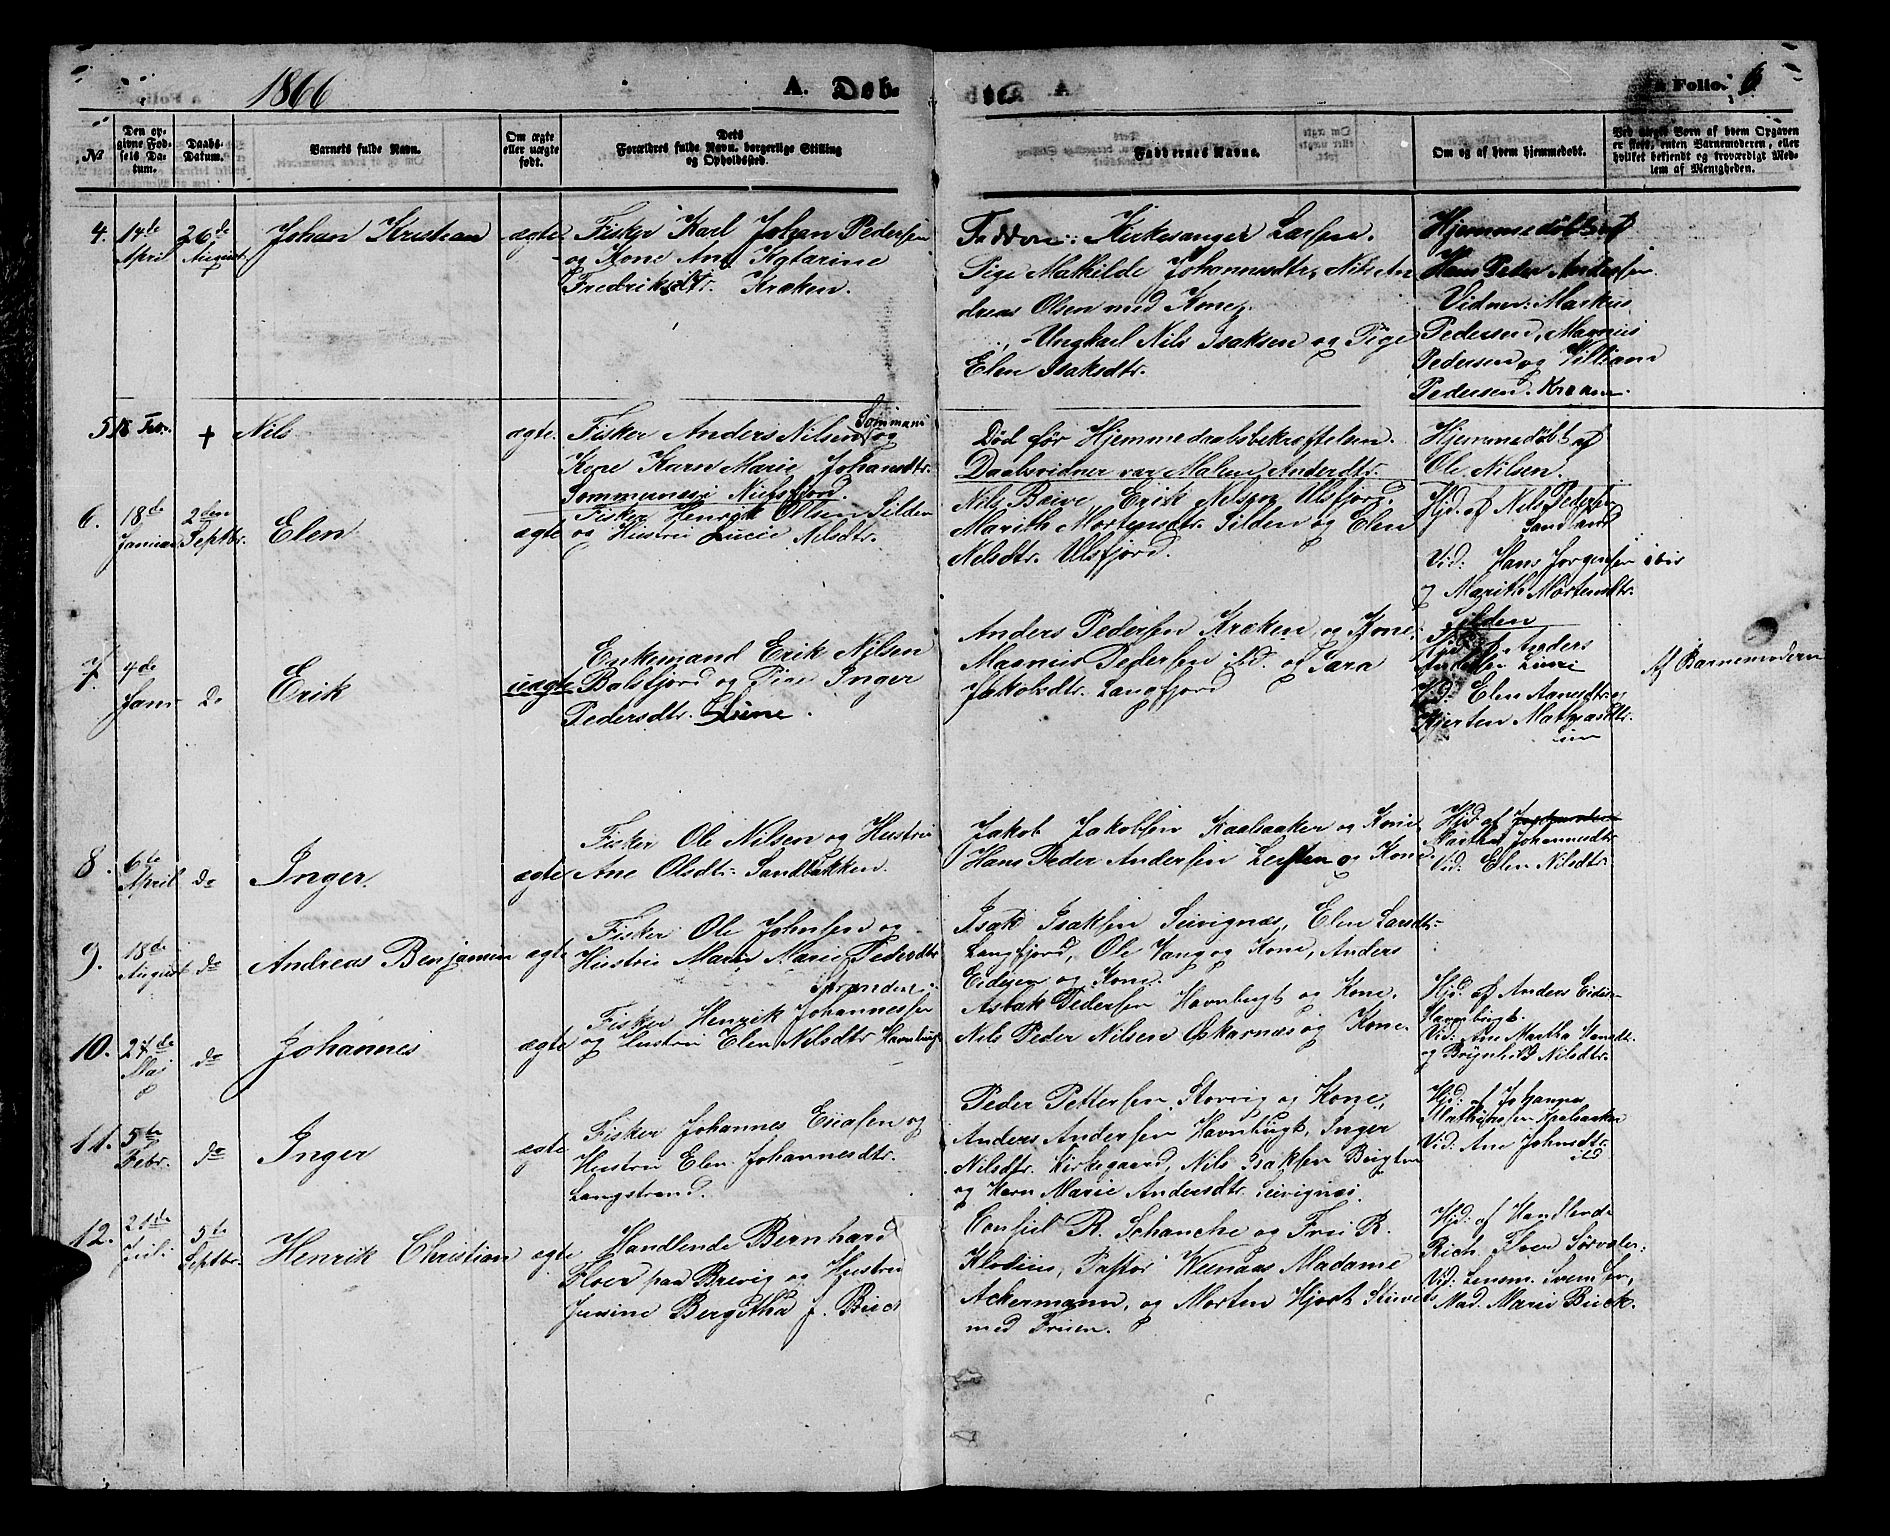 1866
A. Døb-
te. A
Folio. 6
№
Den opgivne Fødsels Datum.
Daabs-Datum.
Barnets fulde Navn.
Om ægte eller uægte født.
Dets Forældres fulde Navn, borgerlige Stilling og Opholdssted.
Faddernes Navne.
Om og af hvem hjemmedøbt.
Ved uægte Børn af hvem Opgaven er skeet, enten Barnemoderen, eller hvilket bekjendt og troværdigt Medlem af Menigheden.
4. 14de April
26de August
Johan Kristian
ægte
Fisker Karl Johan Pedersen
og Kone Ane Katarine
Fredriksdtr. Kræken.
Faddere: Kirkesanger Larsen.
Pige Mathilde Johannesdtr, Nils An
dreas Olsen med Kone,
Ungkarl Nils Isaksen og Pige
Elen Isaksdtr.
Hjemmedøbt af
Hans Peder Andersen.
Vidner: Markus
Pedersen, Magnus
Pedersen og Killiam
Pedersen. Kræken.
5 18 Febr.
+
Nils
ægte.
Fisker Anders Nilsen og
Kone Karn Marie Johansdtr.
Sommernæs i Nuvsfjord.
Død før Hjemmedaabsbekræftelsen.
Daabsvidner var Malene Andersdtr.
Hjemmedøbt af
Ole Nilsen.
6. 18de Januar
2den Septbr.
Elen
ægte
Fisker Henrik Olsen Silden
og Hustru Lucie Nilsdtr.
Nils Baive Erik Nilsen Ulsfjord,
Marith Mortensdtr. Silden og Elen
Nilsdtr. Ulsfjord.
Hjd. af Nils Pedersen
Sandland
Vid: Hans Jørgensen ibid
og Marith Mortensdtr.
Silden
7. 4de Janr
do
Erik
uægte
Enkemand Erik Nilsen
Balsfjord og Pige Inger
Pedersdtr.
Anders Pedersen Kræken og Kone,
Magnus Pedersen ibd. og Sara
Jakobsdtr. Langfjord
Hjd af Anders
Vid: Elen Aanesdtr. og
Kjersten Mathiasdtr.
Af Barnemodern
8. 6te April
do
Inger.
ægte
Fisker Ole Nilsen og Hustru
Ane Olsdtr. Sandbakken.
Jakob Jakobsen Kaalsaaker og Kone,
Hans Peder Andersen og Kone.
Hjd af
Martha Johannesdtr.
Vid: Elen Nilsdtr.
9. 18de August
do
Andreas Benjamin
ægte
Fisker Ole Johnsen og
Hustru Maren Marie Pedersdtr
Isak Isaksen Leivignæs, Elen Larsdtr.
Langfjord, Ole Vang og Kone, Anders
Eidesen og Kone.
10. 27de Mai
do
Johannes
ægte
Fisker Henrik Johannessen
og Hustru Elen Nilsdtr Havnbugt
Aslak Pedersen Havnbugt og Kone.
Nils Peder Nilsen Oskarnæs og Kone.
Hjd. af Anders Eides.
Havnbugt.
Vid: Ane Martha Hansdtr.
og Brynhild Nilsdtr.
11. 5te Febr.
do
Inger
ægte
Fisker Johannes Eliasen og
Hustru Elen Johannesdtr.
Langstrand.
Peder Pettersen Storvig og Kone,
Anders Andersen Havnbugt, Inger
Nilsdtr. Kirkegaard, Nils Isaksen Bugten
og Karn Marie Andersdtr. Leivignæs.
Hjd: af Johannes
Mathiassen
Vid: Ane Johnsdtr.
ibd
12. 21de Juli
5te Septbr.
Henrik Christian
ægte
Handlende Bernhard
Floer paa Brevig og Hustru
Jensine Bergitha f. Buck
Consul R. Schanche og Fru R.
Klodius, Pastor Wisnæs Madame
Ackermann, og Morten Hjort
med Fruen.
Hjd: af Handlende
Rich. Floer Sørvær.
Vid: Lensm. Svendsen,
Mad. Marie Buck.